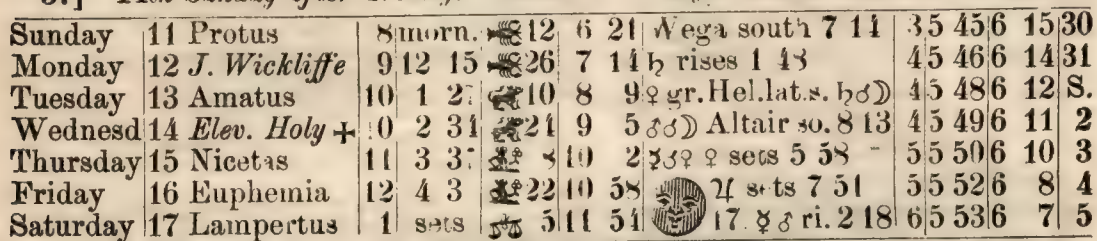 Sunday 11 Protus 8 morn. 12 6 21 Wega south 7 14 3 5 45 6 15 30
Monday 12 J. Wickliffe 9 12 15 26 7 14 ♄ rises 1 48 4 5 46 6 14 31
Tuesday 13 Amatus 10 1 27 10 8 9 ♀ gr. Hel. lat. s. ♄☌☽ 4 5 48 6 12 S.
Wednesd 14 Elev. Holy + 10 2 31 9 5 ♂☌☽ Altair so. 8 13 4 5 49 6 11 2
Thursday 15 Nicetas 11 3 8 10 2 ☿☌♀ ♀ sets 5 58 5 5 50 6 10 3
Friday 16 Euphemia 12 4 3 22 10 58 ♃ sets 7 51 5 5 52 6 8 4
Saturday 17 Lampertus 1 sets 5 11 51 17. ☿ ♂ ri. 2 18 6 5 53 6 7 5